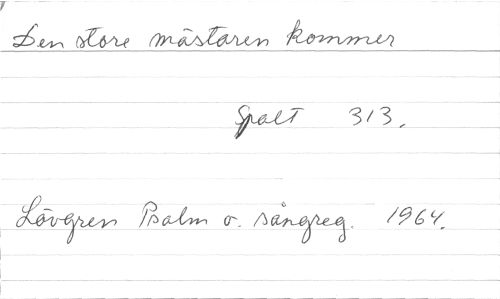 Den store mästaren kommer
Spalt 313.
Lövgren Psalm o. sångreg. 1964.